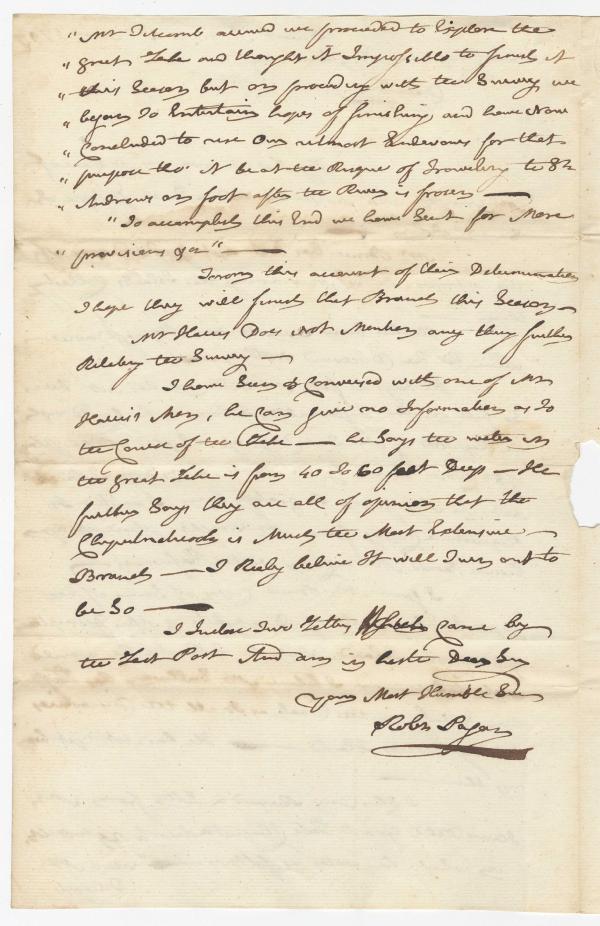 " Mr Titcomb arrived we proceeded to Explore the
" great Lake and thought it Impossible to finish it
" this Season but on proceeding with the Survey we
" began to Entertain hopes of finishing, and have Now
" Concluded to use Our utmost Endeavours for that
" purpose tho' it be at the Risque of Traveling to St
" Andrews on foot after the River is frozen —
" To accomplish this End we have Sent for More
" provisions &ca" —
From this account of their Determination
I hope they will finish that Branch this Season —
Mr Harris Does Not Mention any thing further
Relating the Survey —
I have Seen & Conversed with one of Mr
Harris's Men, he Can give no Information as to
the Course of the Lake — he Says the water in
the great Lake is from 40 to 60 feet Deep — He
further Says they are all of opinion that the
is Much the Most Extensive —
Branch — I Realy believe It will Turn out to
be So —
I Inclose Two Letters Which Came by
the Last Post And am in haste Dear Sir
Your Most Humble Sert
Robt Pagan